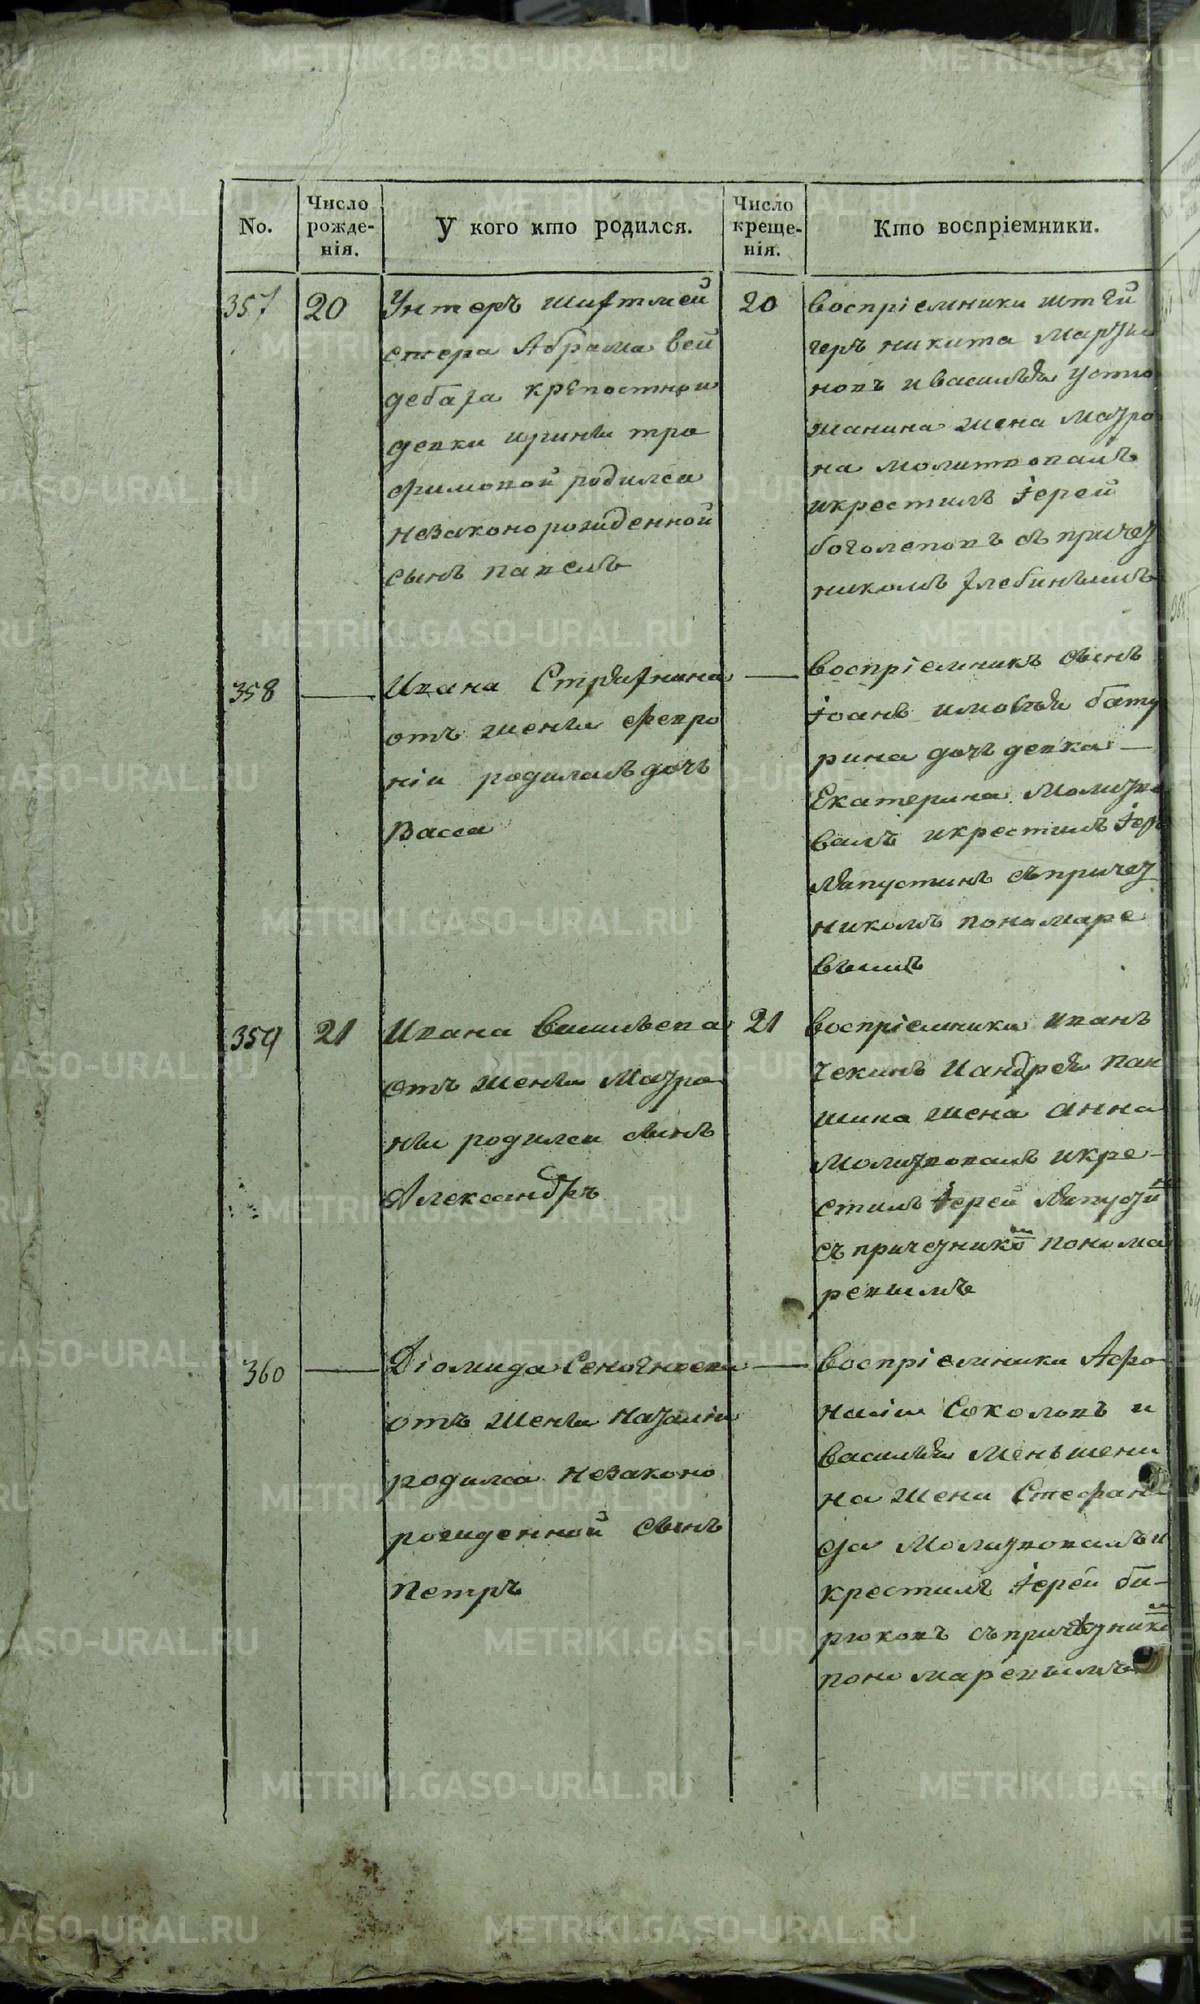 No.
Число рожде-нія.
У кого кто родился.
Число креще-нія.
Кто воспріемники.
357
20
Унтеръ шифтмей
стера Абрама вей
дебаха крепостной
девки ирины тро
фимовой родился
незаконорожденной
сынъ павелъ
20
воспріемники штей
геръ никита
новъ и василья устю
жанина жена матро
на молитвовалъ
и крестилъ іерей
боголеповъ съ причет
никомъ
358
Ивана
отъ жены февро
ніи родилась дочь
Васса
воспріемникъ сынъ
іоанъ имовея бату
рина дочь девка
Екатерина молитво
валъ и крестилъ іер
Ляпустинъ съ причет
никомъ пономаре
вымъ
359
21
Ивана васильева
отъ жены Матро
ны родился сынъ
Александръ
21
воспріемники иванъ
чекинъ И андрея пан
шина жена анна
молитвовалъ и кре-
стилъ іерей Ляпустинъ
съ причетникомъ понома
ревымъ
360
Діомида Сеногноева
отъ жены наталіи
родился незаконо
рожденной сынъ
Петръ
воспріемники Афо
насіи Соколовъ и
василья меньшени
на жена Стефани
да молитвовалъ и
крестилъ іерей би-
рюковъ съ причетникомъ
пономаревымъ
METRIKI.GASO-URAL.RU